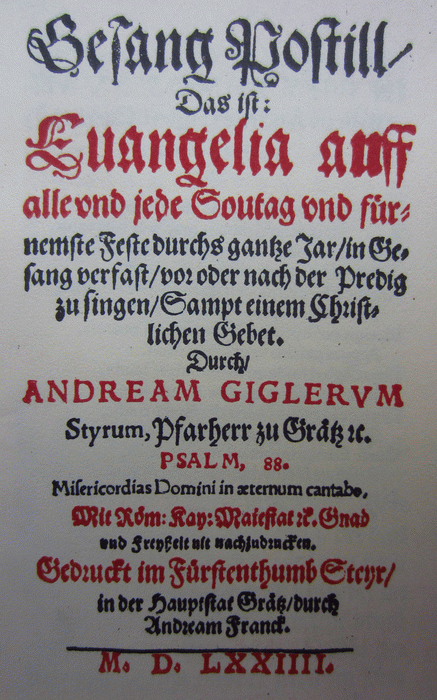 Gesang Postill/
Das ist:
Euangelia auff
alle vnd jede Soutag vnd für-
nemste Feste durchs gantze Jar/in Ge-
sang verfast/vor oder nach der Predig
zu singen/Sampt einem Christ-
lichen Gebet.
Durch/
ANDREAM GIGLERVM
Styrum, Pfarherr zu Grätz ꝛc.
PSALM, 88.
Misericordias Domini in æternum cantabo.
Mit Röm: Kay: Maiestat ꝛc. Gnad
vnd Freyheit nit nachzudrucken.
Gedruckt im Fürstenthumb Steyr/
in der Hauptstat Grätz/durch
Andream Franck.
M. D. LXXIIII.